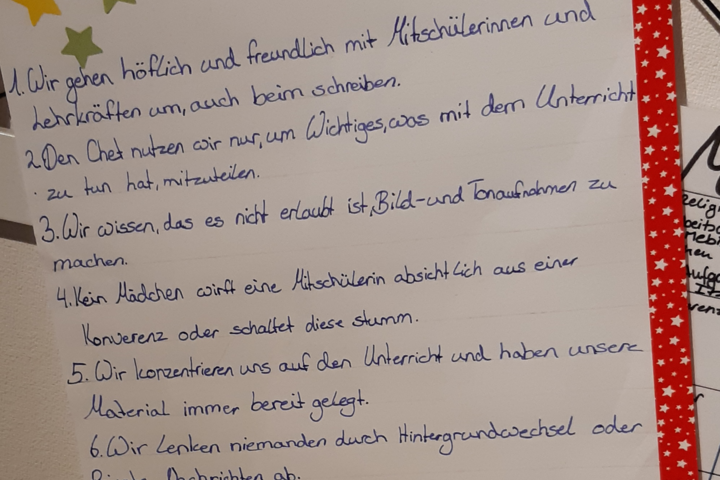 1. Wir gehen höflich und freundlich mit Mitschülerinnen und
Lehrkräften um, auch beim schreiben.
2. Den Chet nutzen wir nur, um Wichtiges, was mit dem Unterricht
zu tun hat, mitzuteilen.
3. Wir wissen, das es nicht erlaubt ist, Bild- und Tonaufnahmen zu
machen.
4. Kein Mädchen wirft eine Mitschülerin absichtlich aus einer
Konverenz oder schaltet diese stumm.
5. Wir konzentrieren uns auf den Unterricht und haben unsere
Material immer bereit gelegt.
6. Wir Lenken niemanden durch Hintergrundwechsel oder
Nachrichten ab.